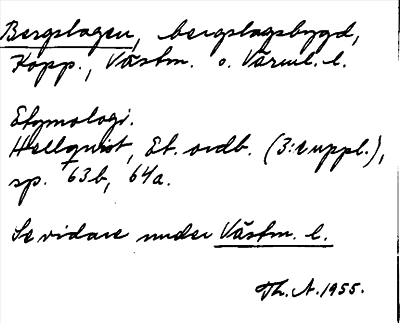 Bergslagen, bergslagsbygd,
Kopp., Västm. o. Värml. l.
Etymologi.
Hellquist, Et. ordb. (3:e uppl.),
sp. 63b, 64a.
Se vidare under Västm. l.
Th. A. 1955.